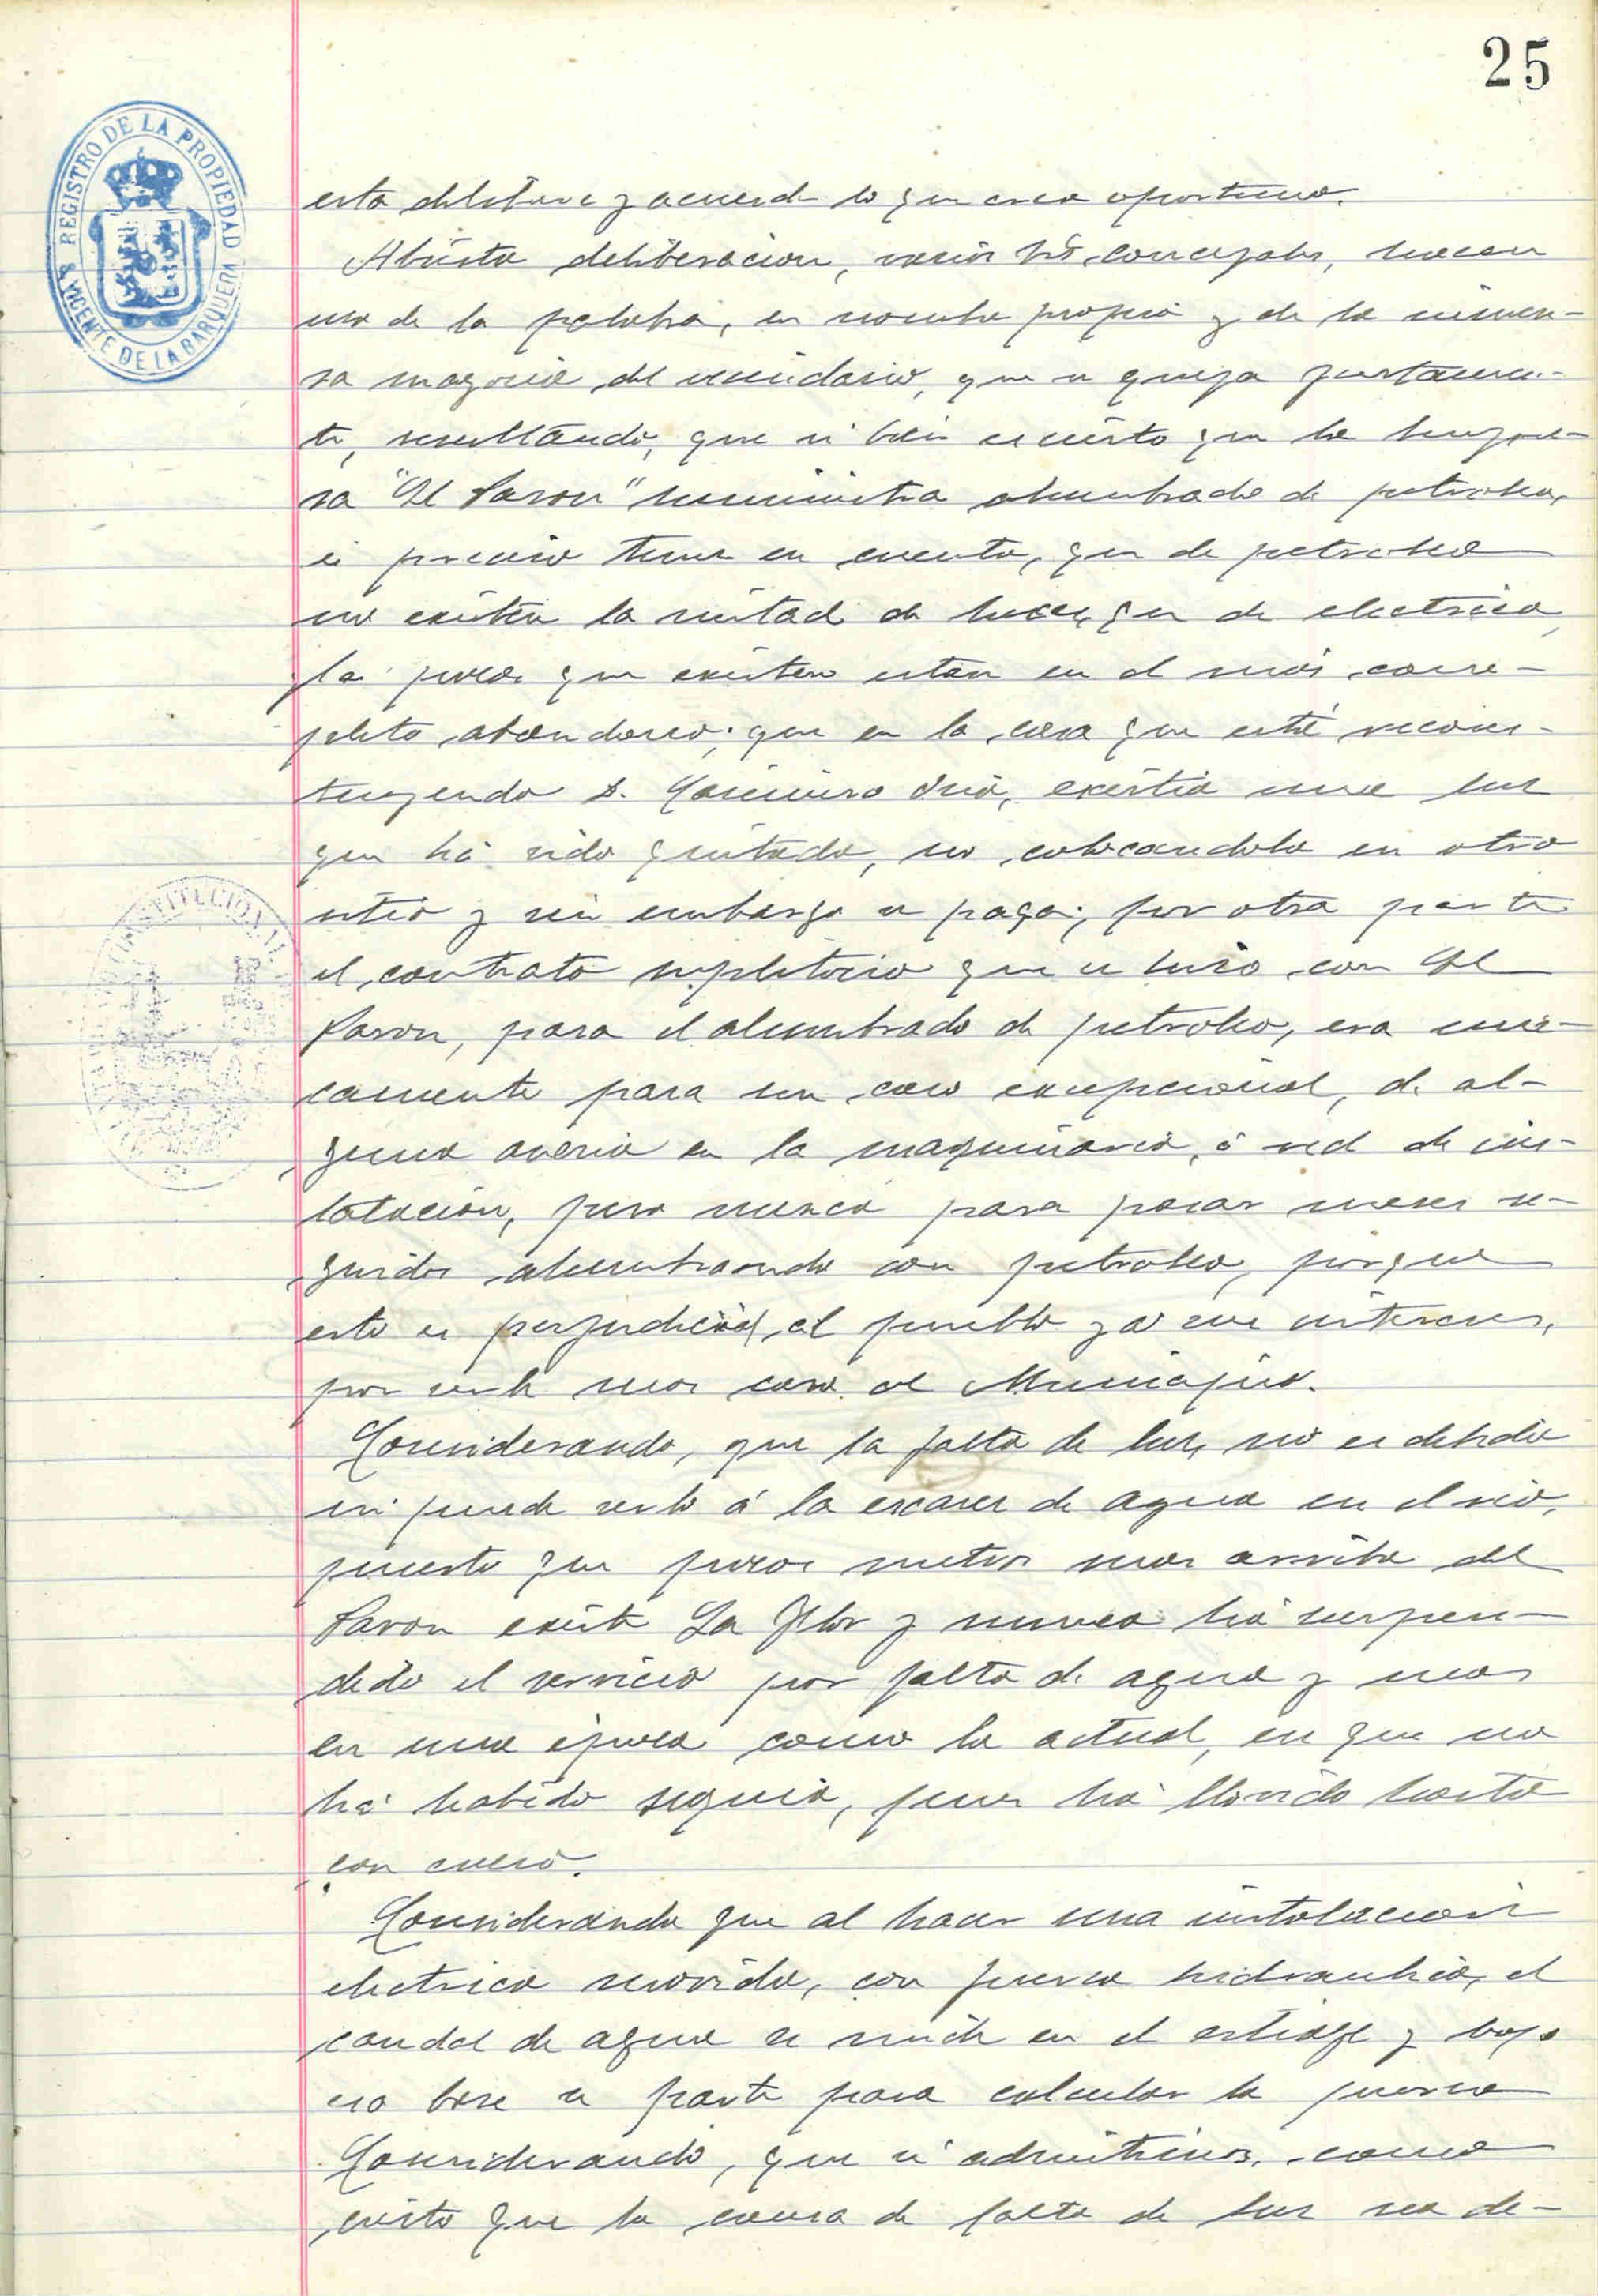 25
REGISTRO DE LA PROPIEDAD
S. VICENTE DE LA BARQUERA
esta delibere y acuerde lo que crea oportuno.
Abierta deliberacion, varios Srs. concejales, hacen
uso de la palabra, en nombre propio y de la inmen-
sa mayoria del vecindario, que se queja justamen-
te, resultando, que si bien es cierto que la Empre-
sa "El Saron" suministra alumbrado de petroleo,
es preciso tener en cuenta, que de petroleo
no existen la mitad de luces, que de electrica
y las pocas que existen estan en el más com-
pleto abandono; que en la casa que está recons-
truyendo D. Casimiro existia una luz
que há sido quitada, no colocandola en otro
sitio y sin embargo se paga; por otra parte
el contrato supletorio que se hizo con El
Saron, para el alumbrado de petroleo, era uni-
camente para un caso excepcional, de al-
guna averia en la maquinaria, ó red de ins-
talacion, pero nunca para pasar meses se-
guidos alumbrando con petroleo, porque
esto es perjudicial al pueblo y a sus intereses,
por serle mas caro al Municipio.
Considerando, que la falta de luz, no es debida
ni puede serlo á la escasez de agua en el rio,
puesto que pocos metros mas arriba del
Saron existe La Flor y nunca há suspen-
dido el servicio por falta de agua y mas
en una época como la actual, en que no
há habido sequia, pues há llovido hasta
con exceso.
Considerando que al hacer una instalacion
electrica movida, con fuerza hidraulica, el
caudal de agua se mide en el estiaje y bajo
esa base se parte para calcular la fuerza
Considerando, que si admitimos, como
cierto que la causa de falta de luz sea de-